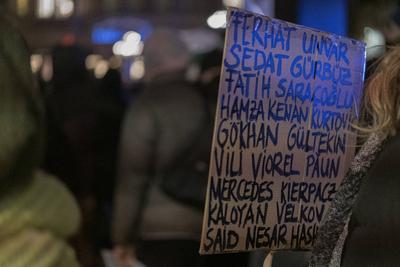 FERHAT UNVAR
SEDAT GÜRBÜZ
FATIH SARAÇOĞLU
HAMZA KENAN KURTOV
GÖKHAN GÜLTEKIN
VILI VIOREL PAUN
MERCEDES KIERPACZ
KALOYAN VELKOV
SAID NESAR HASH